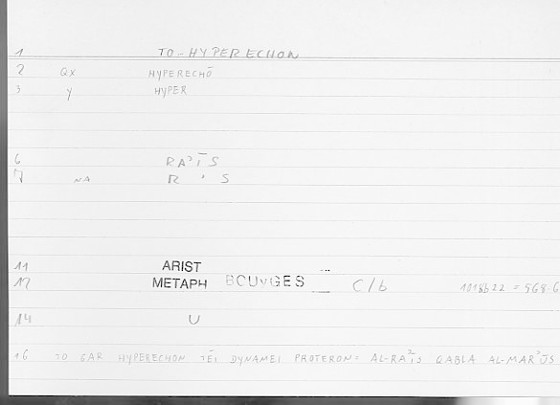 1 TO-HYPERECHON
2 QX HYPERECHŌ
3 Y HYPER
6 RAʾĪS
7 NA R ʾ S
11 ARIST
12 METAPH BOUYGES C/b 1018b22 = 568.6
14 U
16 TO GAR HYPERECHON TĒI DYNAMEI PROTERON = AL-RAʾĪS QABLA AL-MARʾŪS